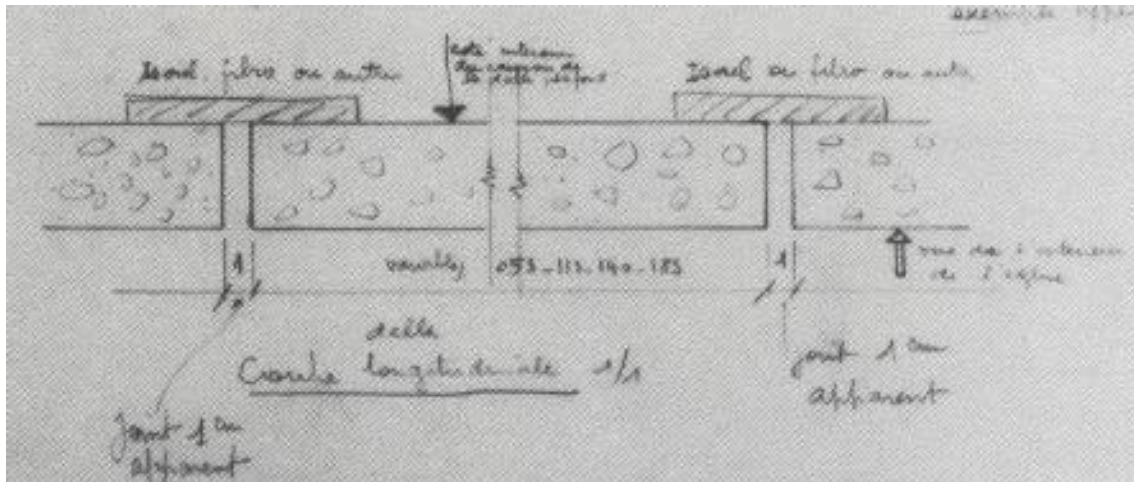 exemple
Isorel, fibro ou autre
coté intérieur
la dalle
Isorel ou fibro ou autre
1
variables 053 - 113 - 140 - 183
1
vue de l'intérieur
de l'église
dalle
longitudinale 1/1
joint 1 cm
apparent
Joint 1 cm
apparent